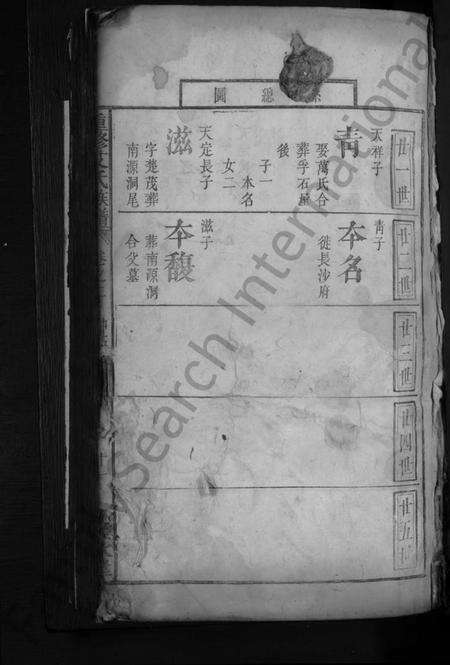 總圖
廿一世
青
天祥子
娶萬氏合
葬孚石屋
後
子一
本名
女二
滋
天定長子
字楚茂葬
南源洞尾
廿二世
本名
青子
徙長沙府
本馥
滋子
葬南源洞
合父墓
廿三世
廿四世
廿五世
重修
氏族譜
Search International